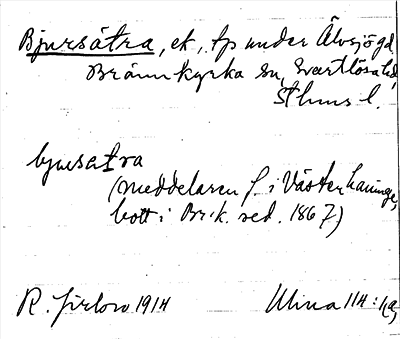 Bjursätra, ek, tp under Älvsjögd,
Brännkyrka sn, Svartlösa hd,
Sthms l.
bjusatra
(meddelaren f. i Västerhaninge,
bott i Br.k. sed. 1867)
R. Jirlow 1914